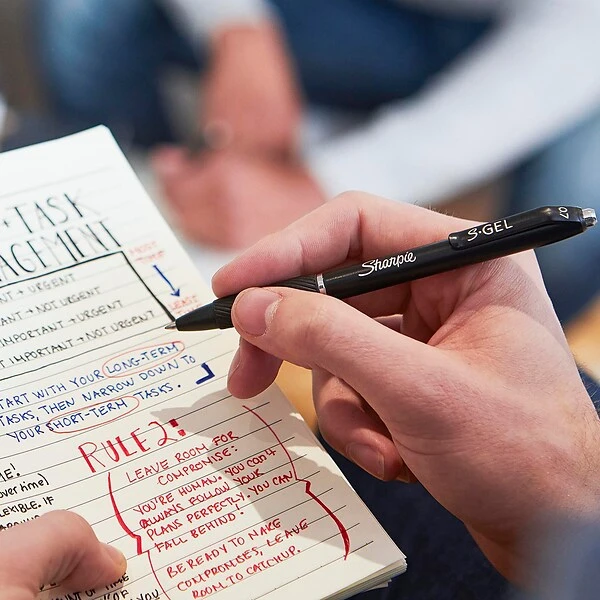 +TASK
AGEMENT
MOST
LEAST
ANT → URGENT
ANT → NOT URGENT
IMPORTANT → URGENT
T IMPORTANT → NOT URGENT
TART WITH YOUR LONG-TERM
TASKS, THEN NARROW DOWN TO
YOUR SHORT-TERM TASKS.
RULE 2:
LEAVE ROOM FOR
COMPROMISE:
YOU'RE HUMAN. YOU CAN'T
ALWAYS FOLLOW YOUR
PLANS PERFECTLY. YOU CAN
FALL BEHIND.
BE READY TO MAKE
COMPROMISES, LEAVE
ROOM TO CATCHUP.
ME!
over time)
LEXIBLE. IF
OUNT OF TIME
YOU
Sharpie
S·GEL
07